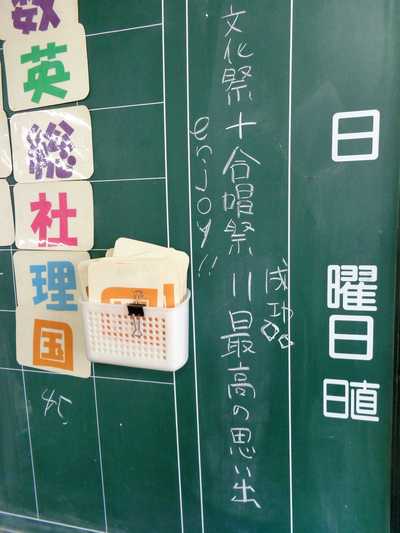 日
曜日
日直
成功。
文化祭+合唱祭=最高の思い出
enjoy!!
数
英
総
社
理
国
45